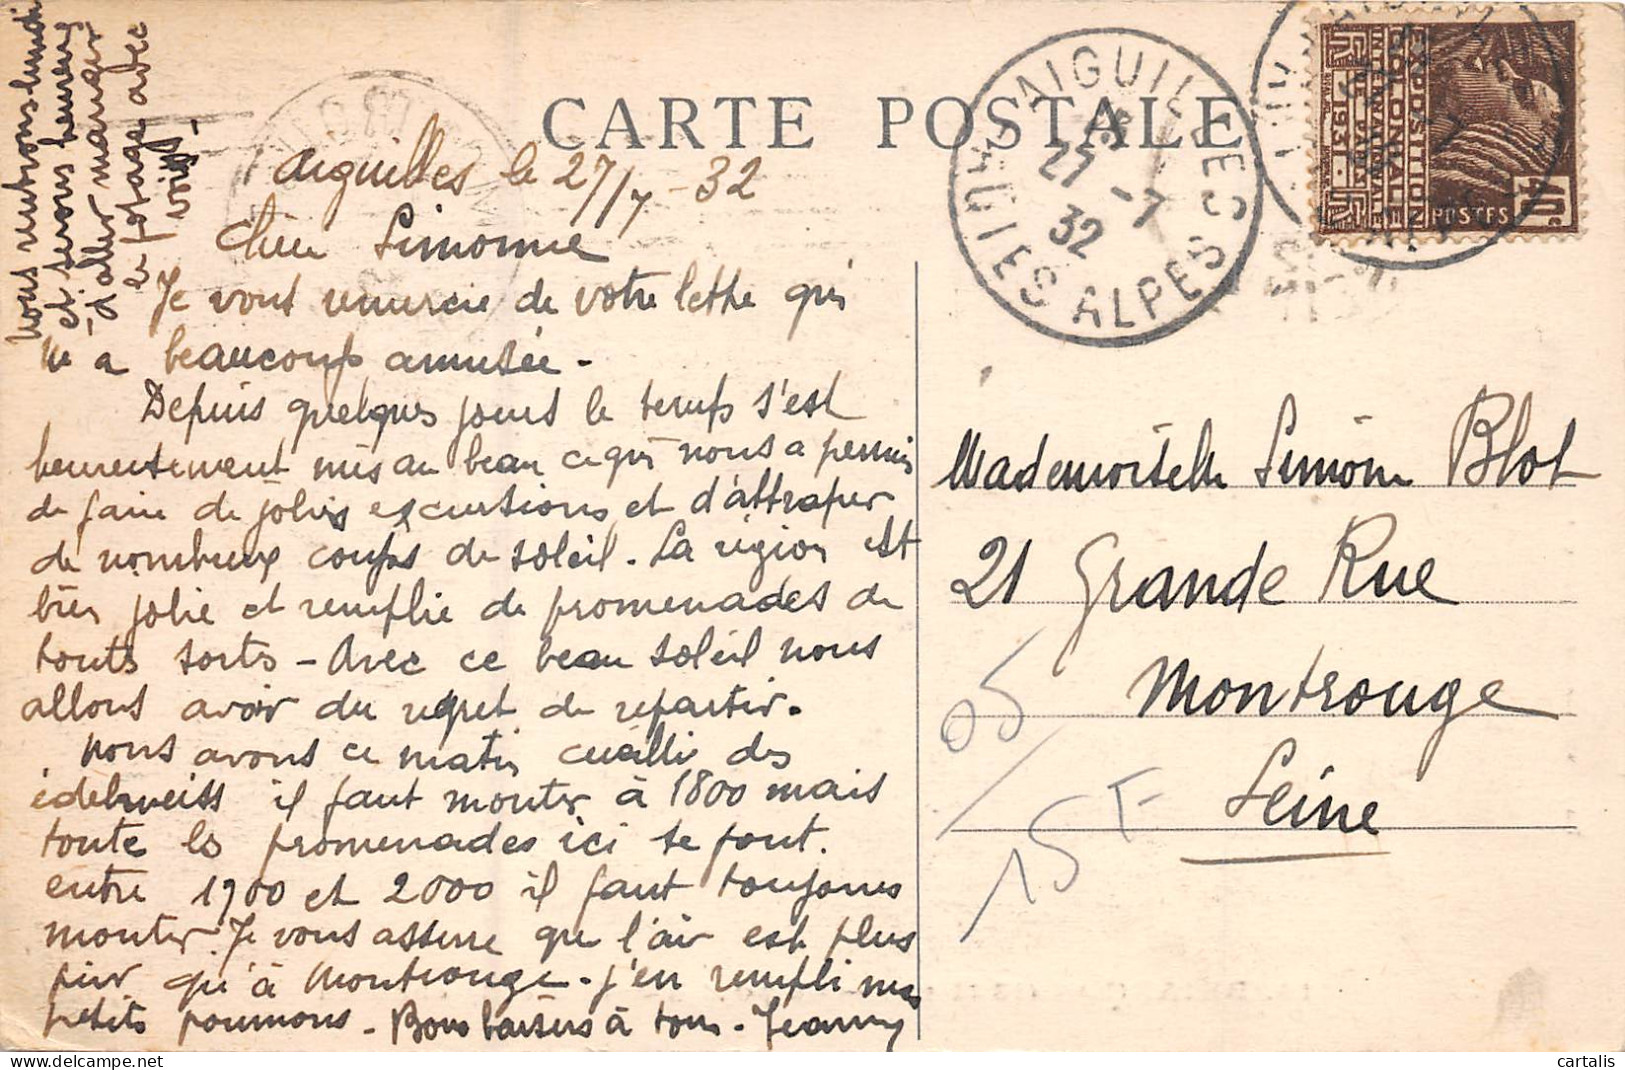 CARTE POSTALE
Aiguilles le 27/7-32
Chère Simonne
Je vous remercie de votre lettre qui
m'a beaucoup amusée.
Depuis quelques jours le temps s'est
heureusement mis au beau ce qui nous a permis
de faire de jolies excursions et d'attraper
de nombreux coups de soleil. La région est
très jolie et remplie de promenades de
touts sorts - Avec ce beau soleil nous
allons avoir du regret de repartir.
Nous avons ce matin cueilli des
edelweiss il faut monter à 1800 mais
toute les promenades ici se font.
entre 1900 et 2000 il faut toujours
monter. Je vous assure que l'air est plus
pur qu'à Montrouge. J'en rempli mes
petits poumons - Bons baisers à tous - Jeanny
Nous rentrons lundi
et serons heureux
d'aller manger
le potage avec
vous -
AIGUILLES
27 -7
32
HTES ALPES
EXPOSITION
COLONIALE
INTERNATIONALE
PARIS
1931
POSTES
40c
Mademoiselle Simone Blot
21 Grande Rue
Montrouge
Seine
05
15F
cartalis